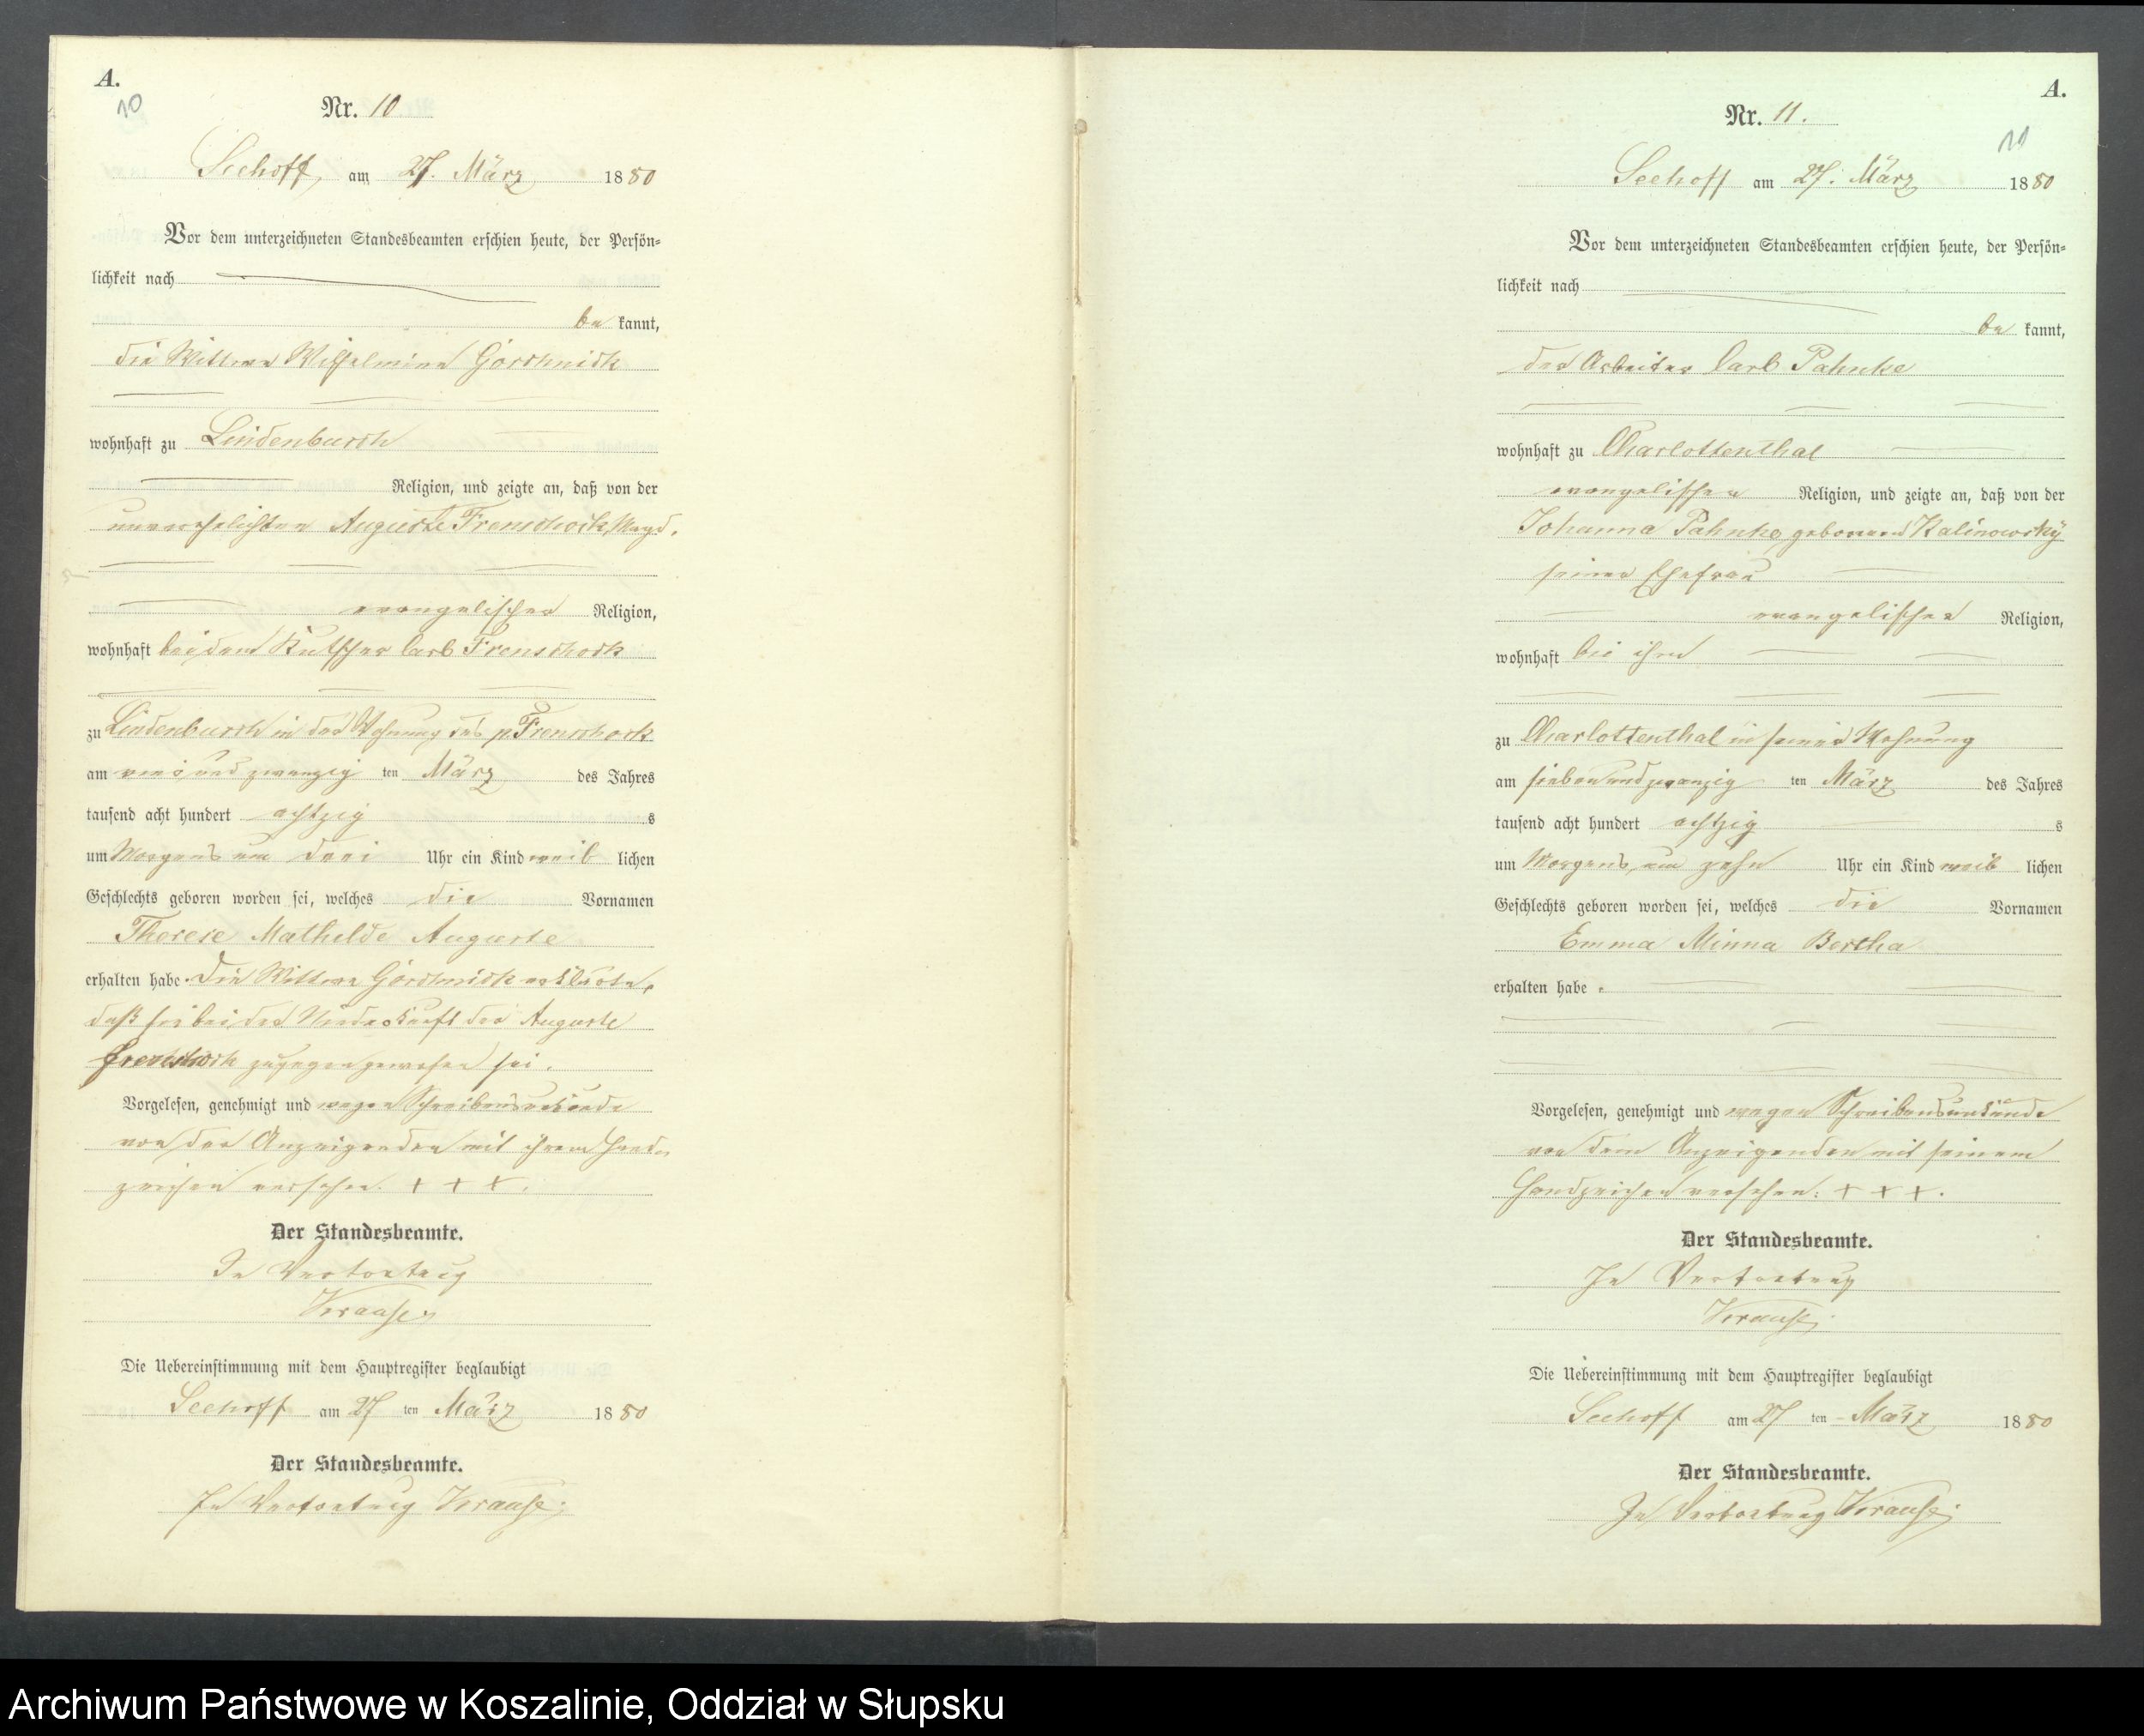 A.
10
Nr. 10
Seehoff, am 27. März 1880
Vor dem unterzeichneten Standesbeamten erschien heute, der Persön-
lichkeit nach
be kannt,
die Wittwe Wilhelmine
wohnhaft zu Lindenbusch
Religion, und zeigte an, daß von der
unverehelichten Auguste Frenschock, Magd,
evangelischer Religion,
wohnhaft bei dem Kutscher Carl Frenschock
zu Lindenbusch in der Wohnung des p. Frenschock
am vier und zwanzig ten März des Jahres
tausend acht hundert achtzig s
um Morgens um drei Uhr ein Kind weib lichen
Geschlechts geboren worden sei, welches die Vornamen
Therese Mathilde Auguste
erhalten habe. Die Wittwe erklärte,
daß sie bei der Niederkunft der Auguste
Frenschock zugegen gewesen sei.
Vorgelesen, genehmigt und wegen Schreibensunkunde
von der Anzeigenden mit ihrem Hand-
zeichen versehen. + + +.
Der Standesbeamte.
In Vertretung
Krause.
Die Uebereinstimmung mit dem Hauptregister beglaubigt
Seehoff am 27 ten März 1880
Der Standesbeamte.
In Vertretung Krause.
A.
11
Nr. 11.
Seehoff am 27. März 1880
Vor dem unterzeichneten Standesbeamten erschien heute, der Persön-
lichkeit nach
be kannt,
der Arbeiter Carl Pahnke
wohnhaft zu Charlottenthal
evangelischer Religion, und zeigte an, daß von der
Johanna Pahnke, geborene Kalinowsky
seiner Ehefrau
evangelischer Religion,
wohnhaft bei ihm
zu Charlottenthal in seiner Wohnung
am sieben und zwanzig ten März des Jahres
tausend acht hundert achtzig s
um Morgens um zehn Uhr ein Kind weib lichen
Geschlechts geboren worden sei, welches die Vornamen
Emma Minna Bertha
erhalten habe.
Vorgelesen, genehmigt und wegen Schreibensunkunde
von dem Anzeigenden mit seinem
Handzeichen versehen: + + +.
Der Standesbeamte.
In Vertretung
Krause.
Die Uebereinstimmung mit dem Hauptregister beglaubigt
Seehoff am 27 ten März 1880
Der Standesbeamte.
In Vertretung Krause.
Archiwum Państwowe w Koszalinie, Oddział w Słupsku